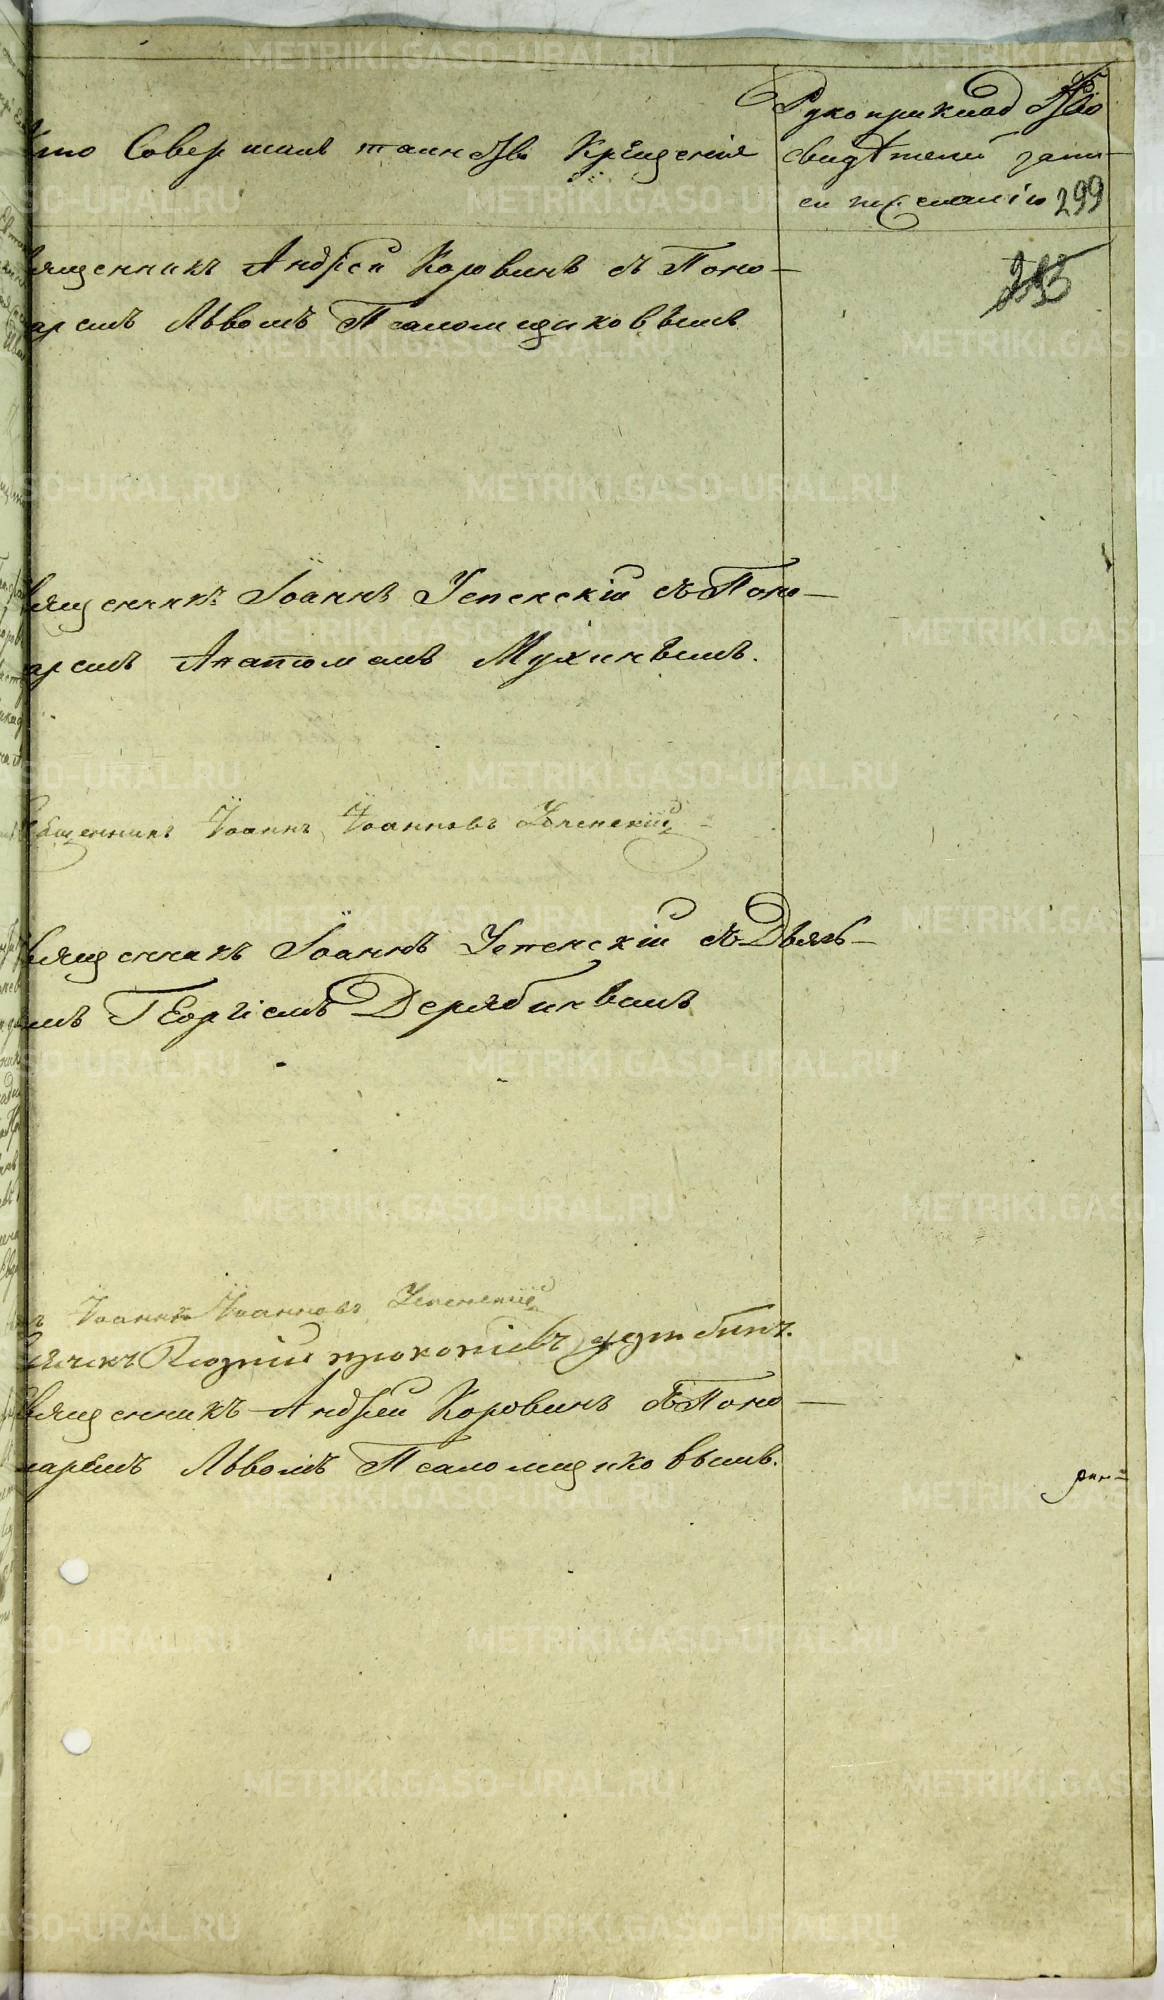 Кто Совершалъ таинство Крещенія
Рукоприкладство
свидѣтелей запи-
си по желанію 299
Священникъ Андрей Коровинъ съ Поно-
маремъ Львомъ Псаломщиковымъ
Священникъ Іоаннъ Успенскій съ Поно-
маремъ Мухинымъ.
Священникъ Іоаннъ Іоанновъ Успенскій
Священникъ Іоаннъ Успенскій съ Дьяч-
комъ Георгіемъ Дерябинымъ
Іоаннъ Іоанновъ Успенскій
Дьячекъ
Священникъ Андрей Коровинъ съ Поно-
маремъ Львомъ Псаломщиковымъ.
METRIKI.GASO-URAL.RU